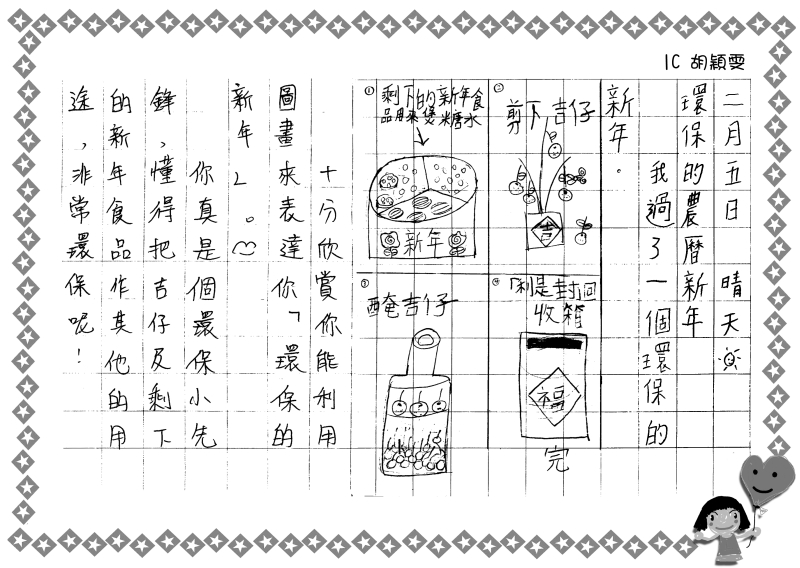 1C 胡穎雯
二月五日 晴天
環保的農曆新年
我過了一個環保的
新年。
①
剩下的新年食
品用來煲糖水
新年
②
剪下吉仔
吉
③
醃吉仔
④
「利是封」回
收箱
福
完
十分欣賞你能利用
圖畫來表達你「環保的
新年」。
你真是個環保小先
鋒，懂得把吉仔及剩下
的新年食品作其他的用
途，非常環保呢！